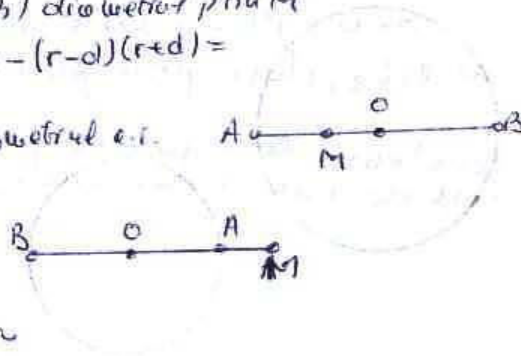 diametrul prin M
- (r-d)(r+d) =
diametrul a.i.
A O B
M
B O A M